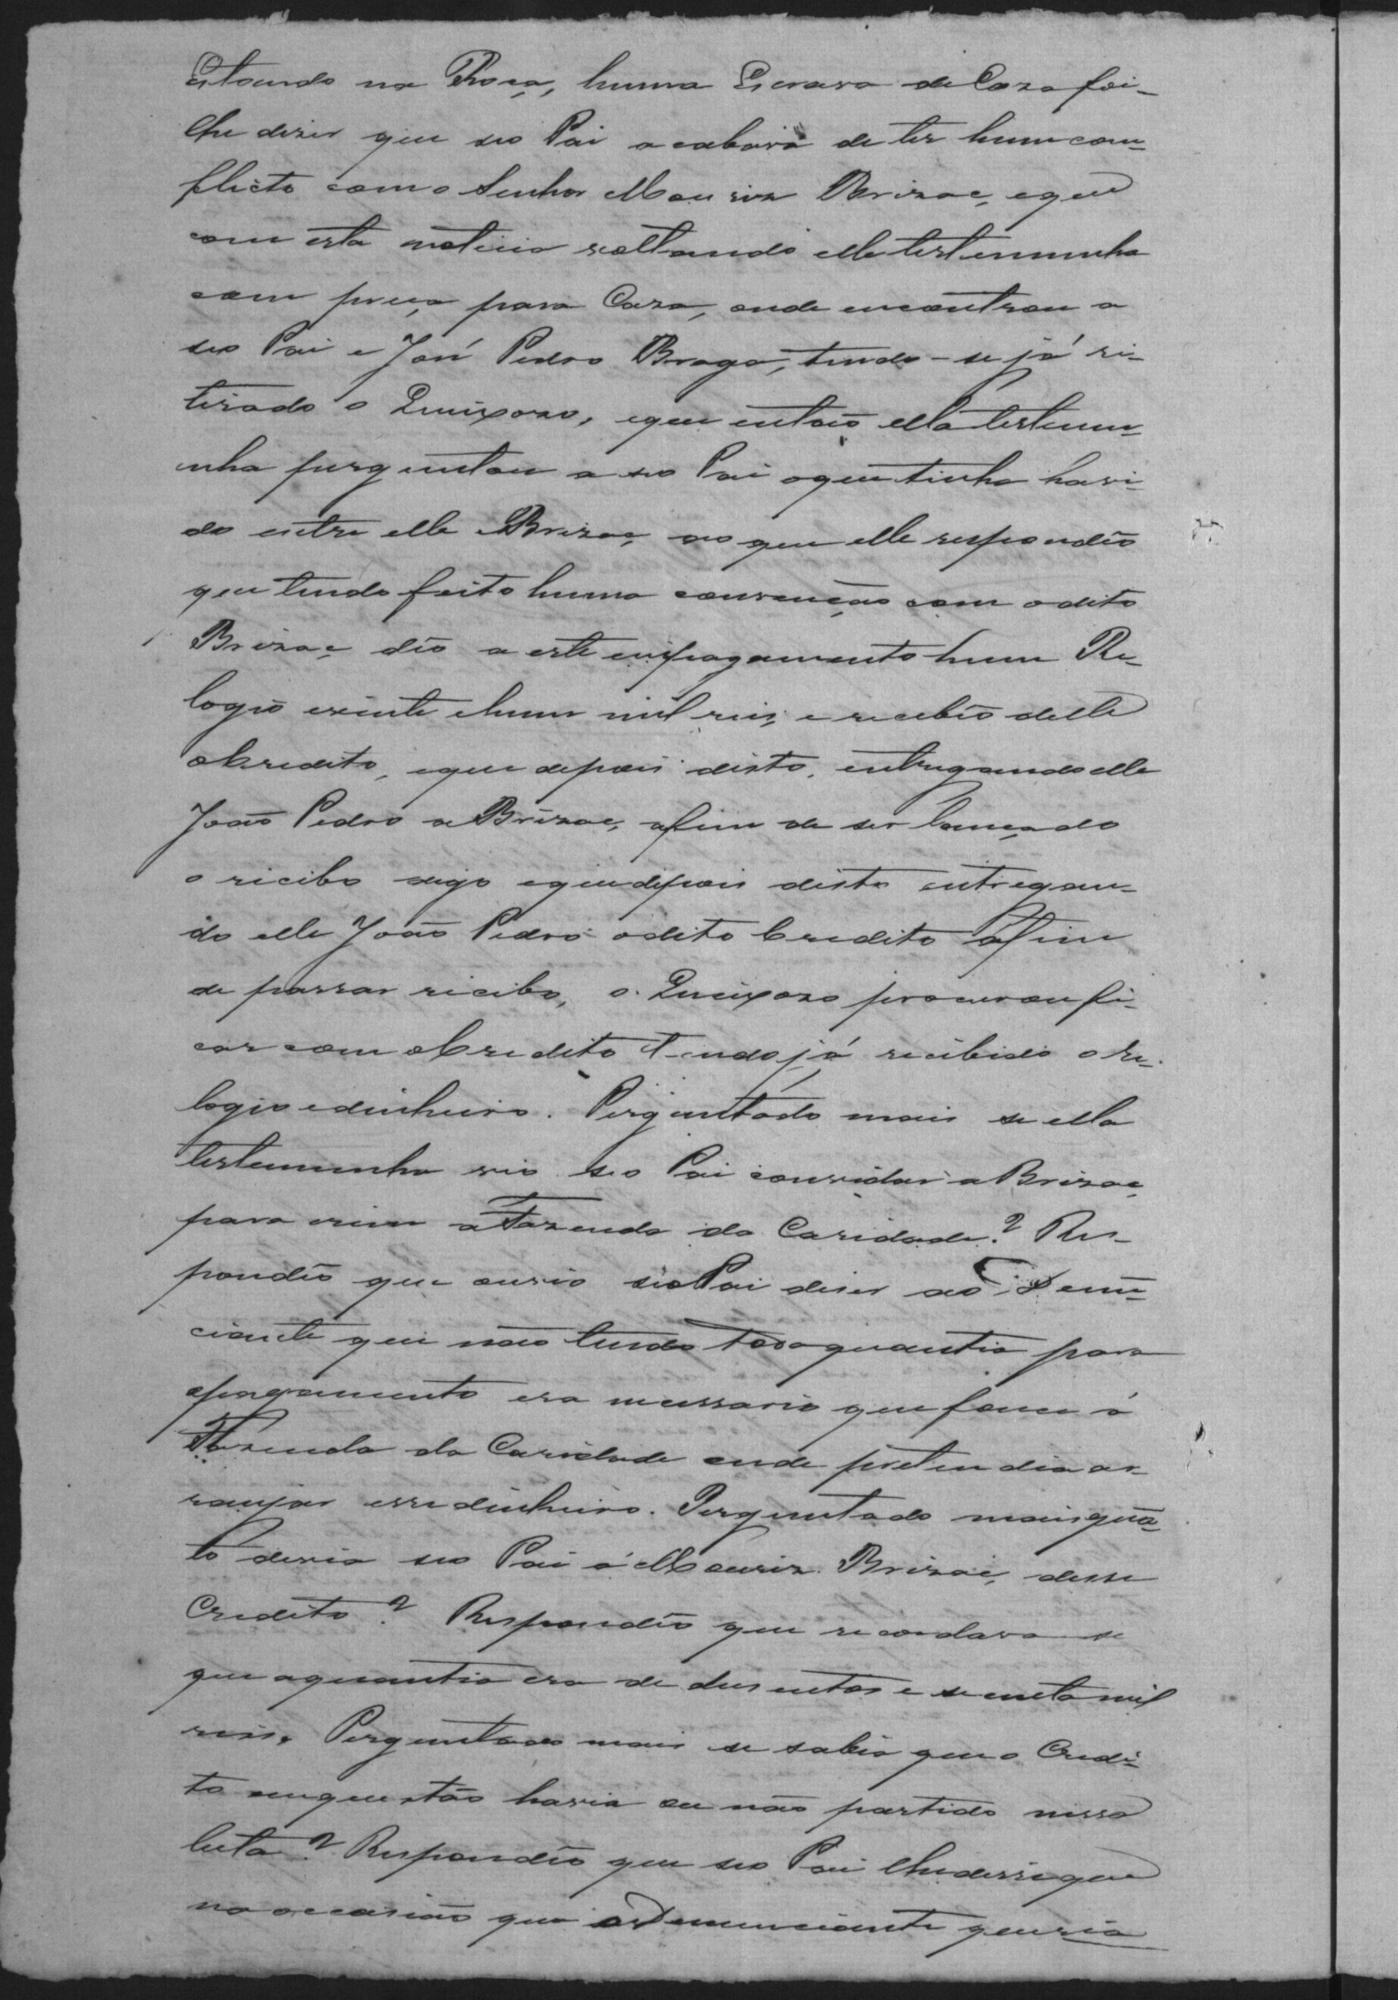 Estando na Roça, huma Escrava de Caza foi-
lhe diser que seo Pai acabava de ter hum com-
flicto com o Senhor Mouriz Brizac, e que
com esta noticia voltando elle testemunha
com preça para Caza, onde encontrou a
seo Pai e José Pedro Braga, tendo-se já re-
tirado o Queixozo, e que então ella testemu-
nha perguntou a seo Pai o que tinha havi-
do entre elle e Brizac, ao que elle respondêo
que tendo feito huma convenção com o dito
Brizac dêo a este em pagamento hum Re-
logio e cinte e hum mil reis, e recebêo delle
o Credito, e que depois disto, entregando elle
João Pedro a Brizac, afim de ser lançado
o recibo digo e que depois disto entregan-
do elle João Pedro o dito Credito afim
de passar recibo, o Queixozo procurou fi-
car com o Credito tendo já recibido o re-
logio e dinheiro. Perguntado mais se ella
testemunha vio seo Pai convidar a Brizac,
para irem a Fazenda da Caridade? Res-
pondêo que ouvio seo Pai diser ao Denun-
ciante que não tendo toda quantia para
o pagamento era nessario que fosse á
Fazenda da Caridade onde pretendia ar-
ranjar esse dinheiro. Perguntado mais quan-
to devia seo Pai á Mouriz Brizac, desse
Credito? Respondêo que recordava se
que a quantia era de dusentos e secenta mil
reis. Perguntado mais se sabia que o Credi-
to em questão havia ou não partido nissa
luta? Respondêo que seo Pai lhe disse que
na occasião que o Denunciante queria